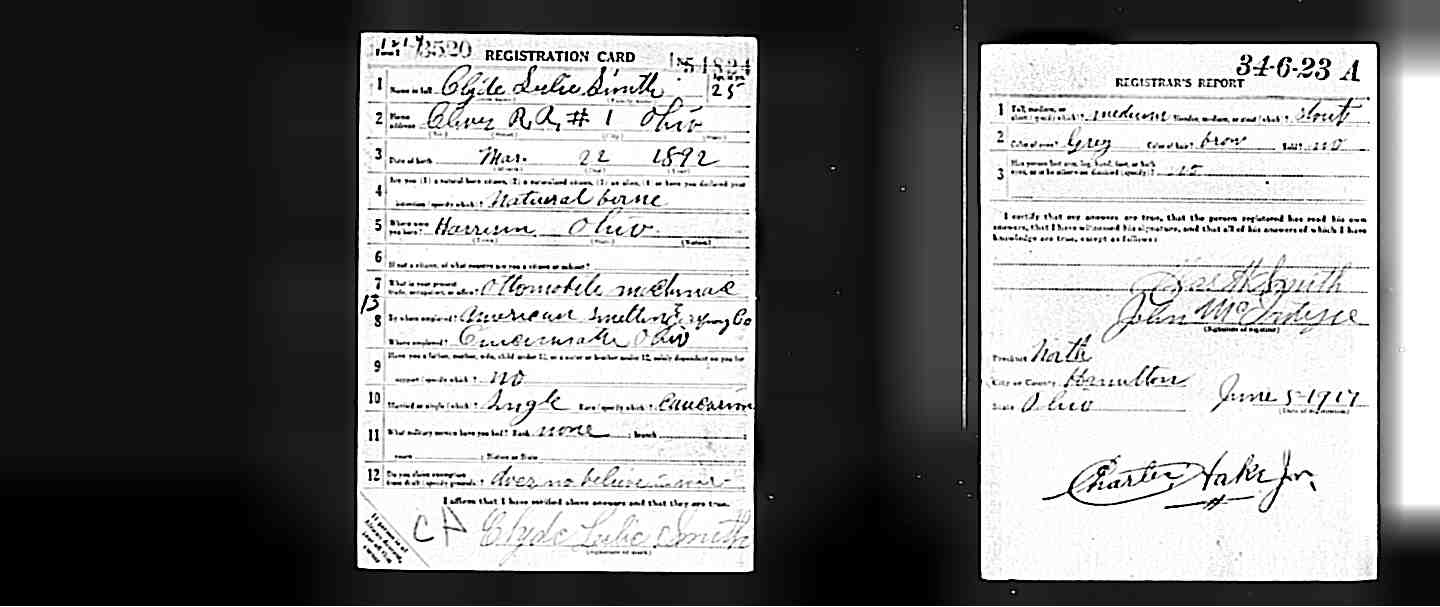 3520 REGISTRATION CARD
1 Name in full Clyde Leslie Smith 25
2 Home address Cleves R.R. # 1 Ohio
3 Date of birth Mar. 22 1892
4 Are you (1) a natural born citizen, (2) a naturalized citizen, (3) an alien, (4) or have you declared your
intention (specify which)? Natural borne
5 Where were you born? Harrison Ohio
(Town) (State) (Nation)
6 If not a citizen, of what country are you a citizen or subject?
7 What is your present trade, occupation, or office? Ottomobile mechinac
13
8 By whom employed? American Smelting Co
Where employed? Cincinnati Ohio
9 Have you a father, mother, wife, child under 12, or a sister or brother under 12, solely dependent on you for
support (specify which)? no
10 Married or single (which)? Single Race (specify which)? Caucasion
11 What military service have you had? Rank none ; branch
years ; Nation or State
12 Do you claim exemption from draft (specify grounds)? does no believe in war
I affirm that I have verified above answers and that they are true.
Clyde Leslie Smith
(Signature or mark)
34-6-23 A
REGISTRAR'S REPORT
1 Tall, medium, or short (specify which)? medium Slender, medium, or stout (which)? stout
2 Color of eyes? Grey Color of hair? brow Bald? no
3 Has person lost arm, leg, hand, foot, or both eyes, or is he otherwise disabled (specify)? no
I certify that my answers are true, that the person registered has read his own
answers, that I have witnessed his signature, and that all of his answers of which I have
knowledge are true, except as follows:
Smith
John McIntyre
(Signature of registrar)
Precinct North
City or County Hamilton
State Ohio June 5-1917
(Date of registration)
Charter Oake Jr.